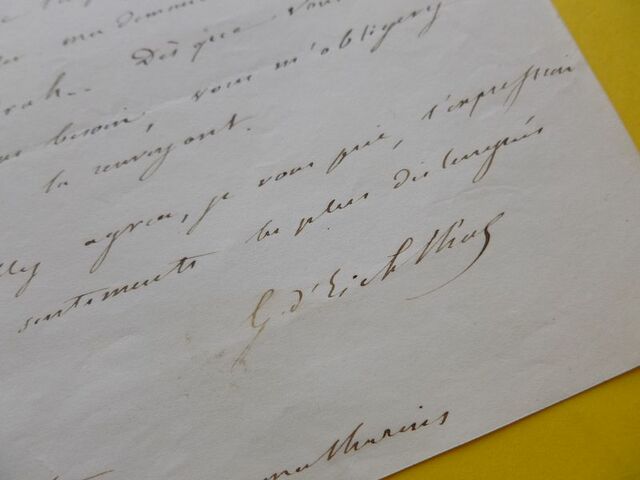 ma
Dès que vous
besoin, vous m'obligerez
la renvoyant.
agréer, je vous prie, l'expression
sentiments les plus distingués
G. d'Eichthal
mathurins